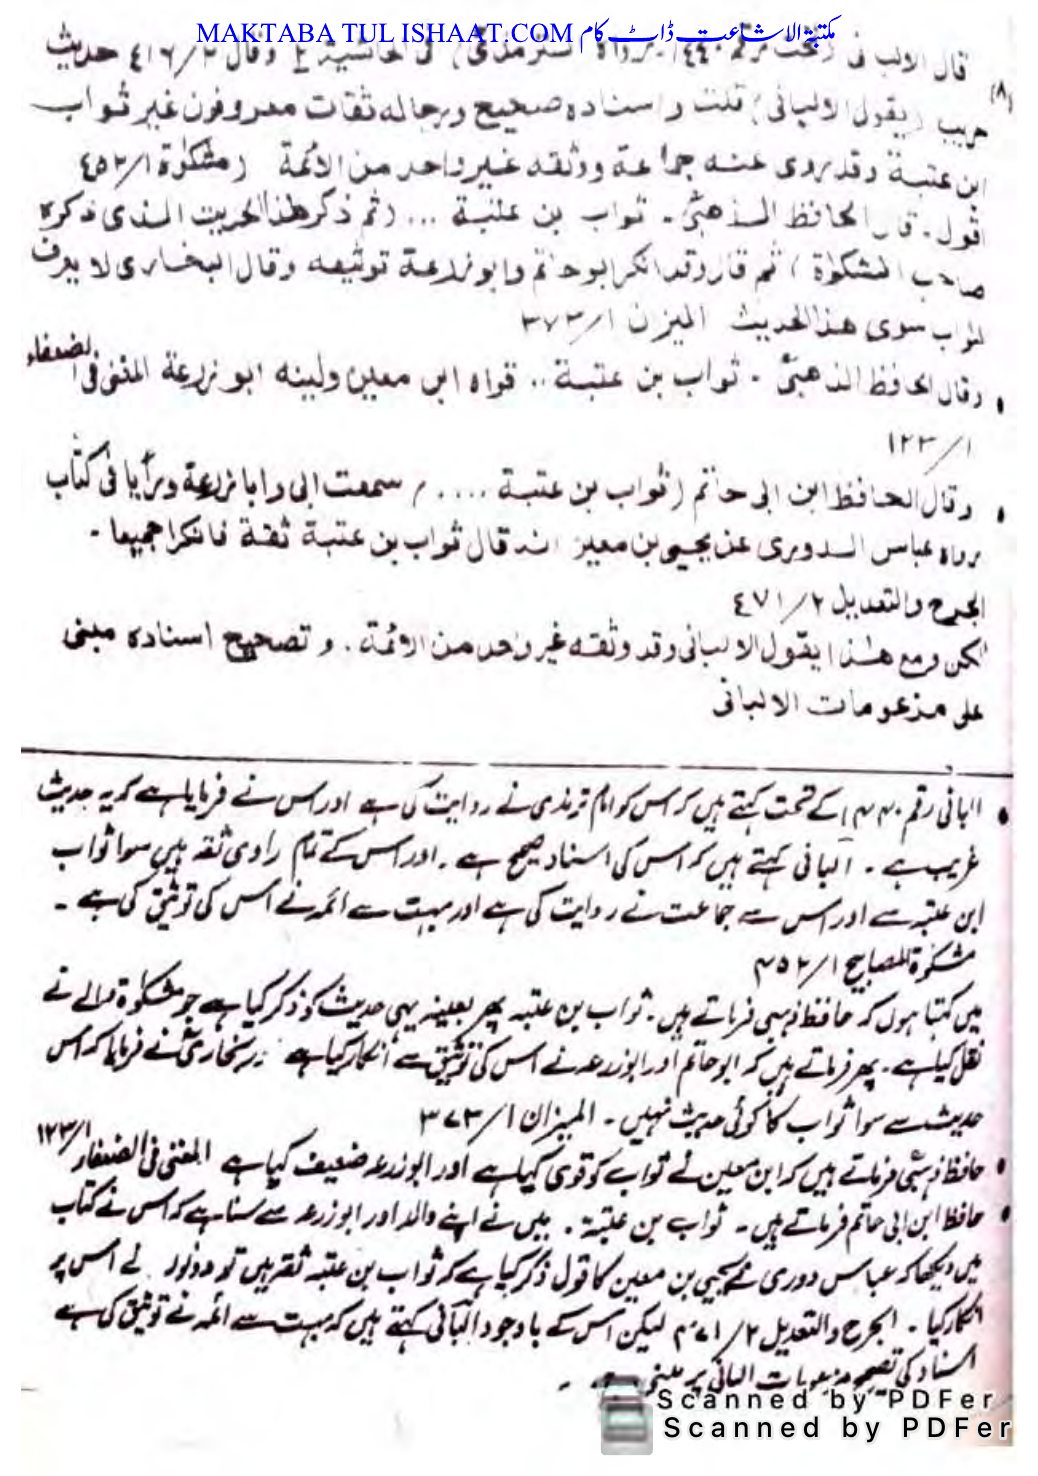 MAKTABA TUL ISHAAT.COM مکتبۃ الاشاعت ڈاٹ کام
(٨) قال الالبانی (تحت رقم ١٤٤٠۔ رواہ الترمذی) فی حاشیۃ وقال ٢/٤١٦ حدیث
غریب (یقول الالبانی) قلت واسنادہ صحیح ورجالہ ثقات معروفون غیر ثواب
ابن عتبۃ وقد روی عنہ جماعۃ ووثقہ غیر واحد من الائمۃ (مشکوٰۃ ١/٤٥٢
اقول۔ قال الحافظ الذھبیؒ۔ ثواب بن عتبۃ ... (ثم ذکر ھذا الحدیث الذی ذکرہ
صاحب المشکوٰۃ) ثم قال وقد انکر ابو حاتم وابو زرعۃ توثیقہ وقال البخاری لا یعرف
لثواب سوی ھذا الحدیث المیزان ١/٣٧٣
• وقال الحافظ الذھبیؒ۔ ثواب بن عتبۃ .. قواہ ابن معین ولینہ ابو زرعۃ المغنی فی الضعفاء
١/١٢٣
• وقال الحافظ ابن ابی حاتم (ثواب بن عتبۃ ....) سمعت ابی وابا زرعۃ ورأیا فی کتاب
رواہ عباس الدوری عن یحیی بن معین انہ قال ثواب بن عتبۃ ثقۃ فانکرا جمیعا۔
الجرح والتعدیل ٢/٤٧١
لکن ومع ھٰذا یقول الالبانی وقد وثقہ غیر واحد من الائمۃ۔ و تصحیح اسنادہ مبنی
علی مزعومات الالبانی
• البانی رقم ١٤٤٠ کے تحت کہتے ہیں کہ اس کو امام ترمذی نے روایت کی ہے اور اس نے فرمایا ہے کہ یہ حدیث
غریب ہے۔ البانی کہتے ہیں کہ اس کی اسناد صحیح ہے۔ اور اس کے تمام راوی ثقہ ہیں سوا ثواب
ابن عتبہ سے اور اس سے جماعت نے روایت کی ہے اور بہت سے ائمہ نے اس کی توثیق کی ہے۔
مشکوٰۃ المصابیح ١/٤٥٢
میں کہتا ہوں کہ حافظ ذہبی فرماتے ہیں۔ ثواب بن عتبہ پھر بعینہ یہی حدیث کو ذکر کیا ہے جو مشکوٰۃ والے نے
نقل کیا ہے۔ پھر فرماتے ہیں کہ ابو حاتم اور ابو زرعہ نے اس کی توثیق سے انکار کیا ہے اور بخاریؒ نے فرمایا کہ اس
حدیث سے سوا ثواب کا کوئی حدیث نہیں۔ المیزان ١/٣٧٣
• حافظ ذہبیؒ فرماتے ہیں کہ ابن معین نے ثواب کو قوی کہا ہے اور ابو زرعہ ضعیف کہا ہے المغنی فی الضعفاء ١/١٢٣
• حافظ ابن ابی حاتم فرماتے ہیں۔ ثواب بن عتبۃ۔ میں نے اپنے والد اور ابو زرعہ سے سنا ہے کہ اس نے کتاب
میں دیکھا کہ عباس دوری نے یحیی بن معین کا قول ذکر کیا ہے کہ ثواب بن عتبہ ثقہ ہیں تو دونوں نے اس پر
انکار کیا۔ الجرح والتعدیل ٢/٤٧١ لیکن اس کے باوجود البانی کہتے ہیں کہ بہت سے ائمہ نے توثیق کی ہے
اسناد کی تصحیح مزعومات البانی پر مبنی ہے۔
Scanned by PDFer
Scanned by PDFer